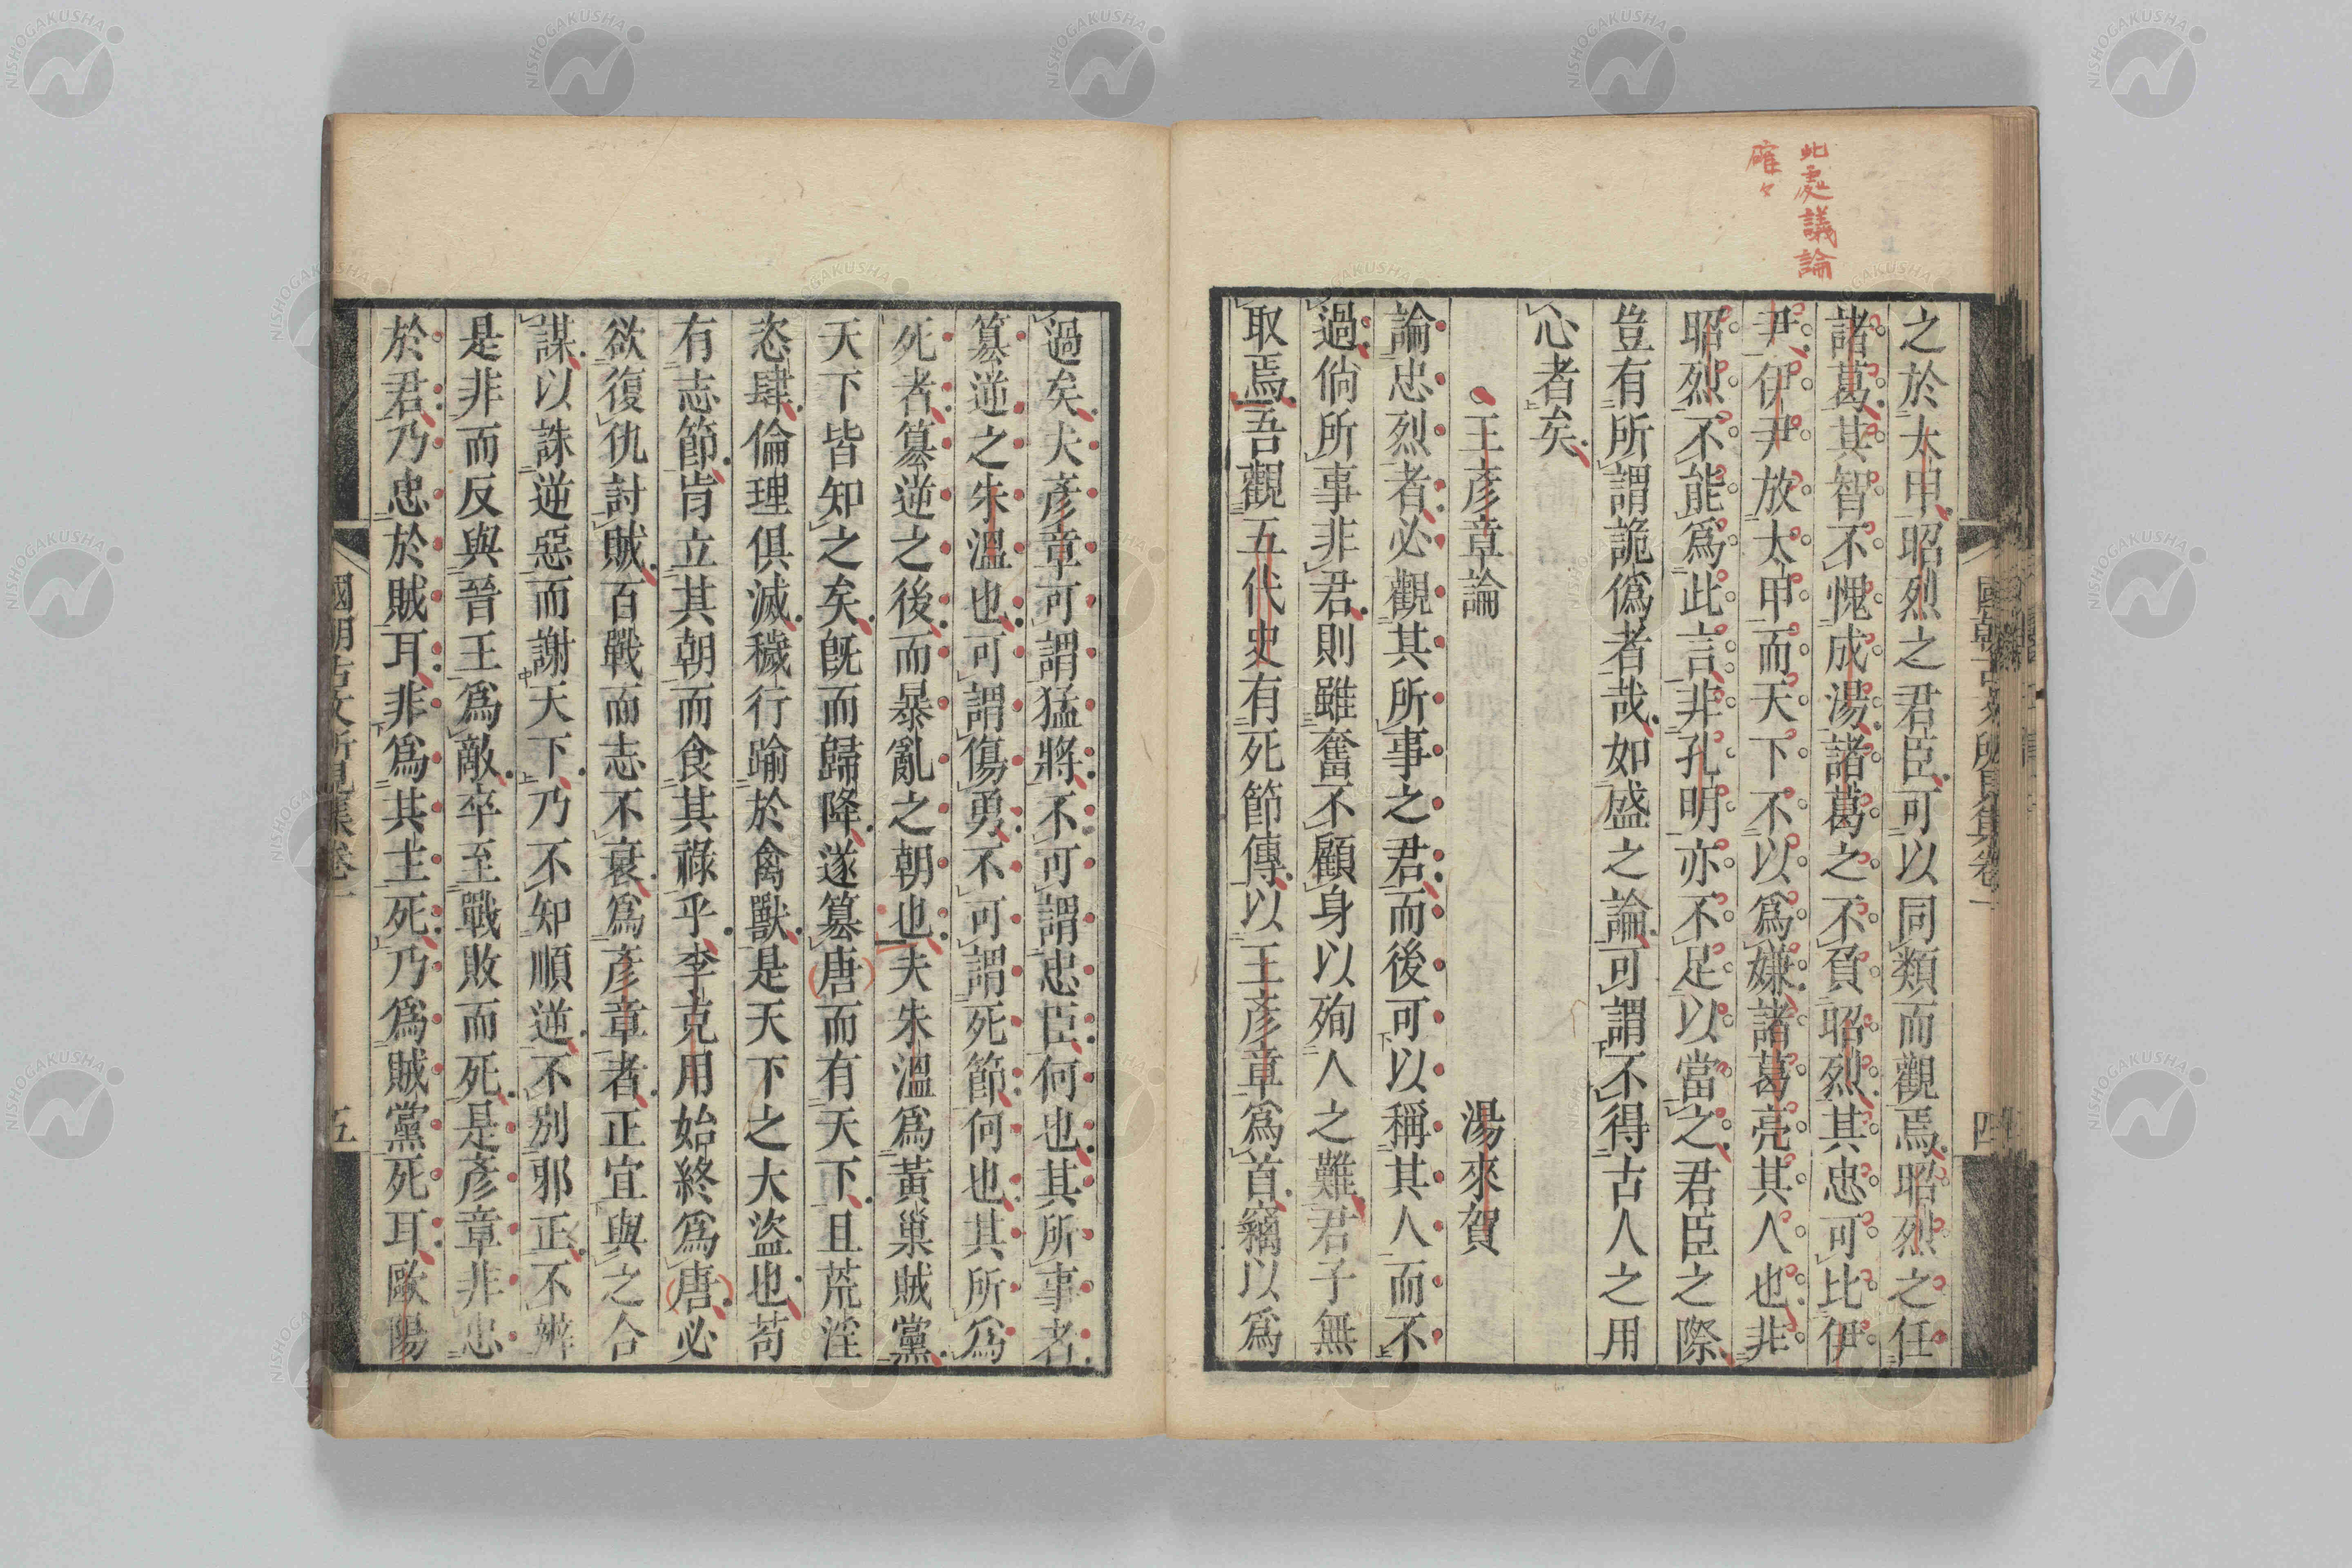 此處議論
確々
之於太甲昭烈之君臣可以同類而觀焉昭烈之任
諸葛其智不愧成湯諸葛之不負昭烈其忠可比伊
尹伊尹放太甲而天下不以爲嫌諸葛亮其人也非
昭烈不能爲此言非孔明亦不足以當之君臣之際
豈有所謂詭僞者哉如盛之論可謂不得古人之用
心者矣
王彥章論
湯來賀
論忠烈者必觀其所事之君而後可以稱其人而不
過倘所事非君則雖奮不顧身以殉人之難君子無
取焉吾觀五代史有死節傳以王彥章爲首竊以爲
四
過矣夫彥章可謂猛將不可謂忠臣何也其所事者
篡逆之朱溫也可謂傷勇不可謂死節何也其所爲
死者篡逆之後而暴亂之朝也夫朱溫爲黃巢賊黨
天下皆知之矣旣而歸降遂篡唐而有天下且荒淫
恣肆倫理俱滅穢行踰於禽獸是天下之大盜也苟
有志節肯立其朝而食其祿乎李克用始終爲唐必
欲復仇討賊百戰而志不衰爲彥章者正宜與之合
謀以誅逆惡而謝天下乃不知順逆不別邪正不辨
是非而反與晉王爲敵卒至戰敗而死是彥章非忠
於君乃忠於賊耳非爲其主死乃爲賊黨死耳歐陽
國朝古文所見集卷一
五
NISHOGAKUSHA